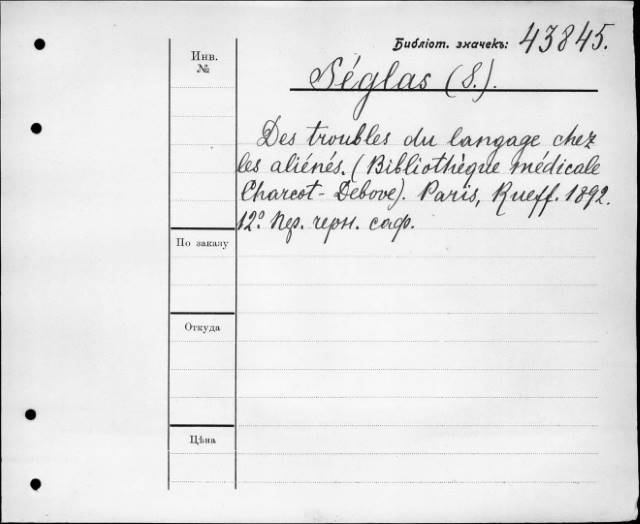 Библіот. значекъ: 43845.
Инв. №
Séglas (S.).
Des troubles du langage chez
les aliénés. (Bibliothèque médicale
Charcot-Debove). Paris, Rueff. 1892.
12º. Пер. черн. саф.
По заказу
Откуда
Цѣна